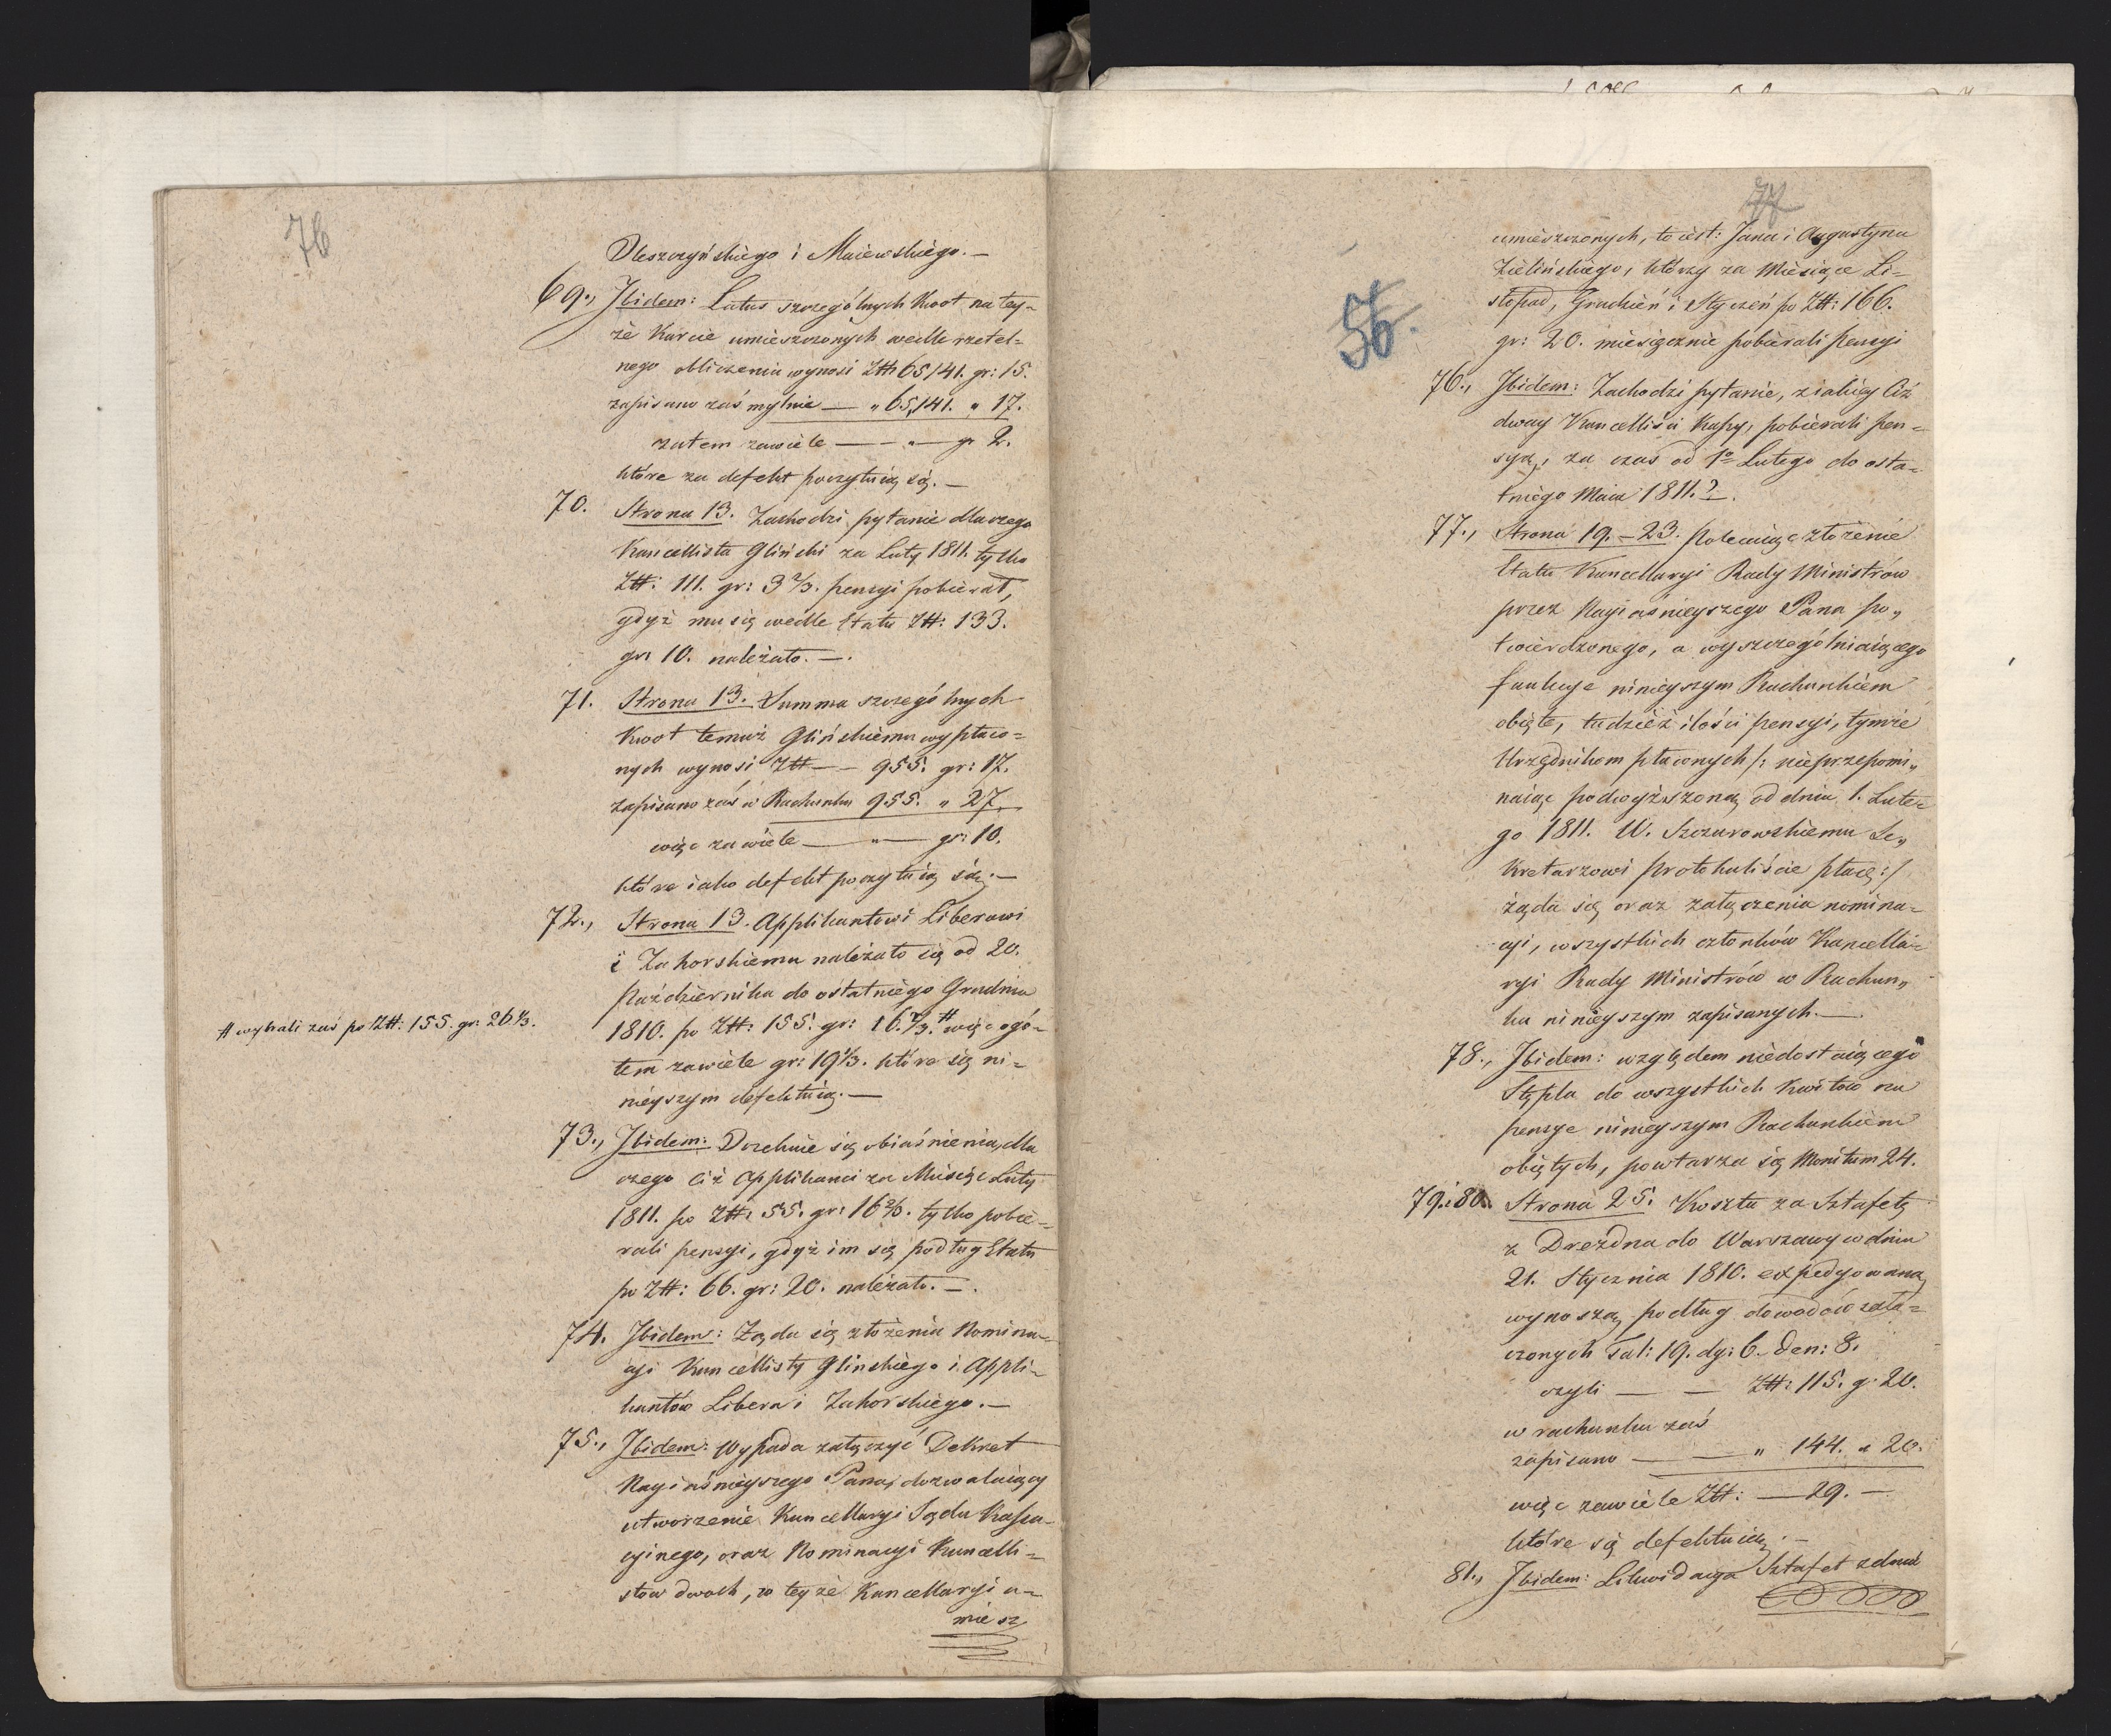 76
Oleszczyńskiego i Maiewskiego. —
69., Ibidem: Latus szczególnych Kwot na tey=
że Karcie umieszczonych wedle rzetel=
nego obliczenia wynosi Złł 65141. gr: 15.
zapisano zaś mylnie — „ 65,141. „ 17.
zatem zawiele — — „ — gr 2.
które za defekt poczytuią się. —
70. Strona 13. Zachodzi pytanie dlaczego
Kancellista Gliński za Luty 1811. tylko
Złł: 111. gr: 3 2/3. pensyi pobierał,
gdyż mu się wedle Etatu Złł: 133.
gr: 10. należało. —.
71. Strona 13. Summa szczególnych
Kwot temuż Glińskiemu wypłaco=
nych wynosi Złł — — 955. gr: 17.
zapisano zaś w Rachunku 955. „ 27.
więc zawiele — „ — gr: 10.
które iako defekt poczytuią się. —
72., Strona 13. Applikantowi Liberowi
i Zahorskiemu należało się od 20.
Października do ostatniego Grudnia
1810. po Złł: 155. gr: 16. 2/3. # więc ogó=
# wybrali zaś po Złł: 155. gr: 26 1/3.
łem zawiele gr: 19 1/3. które się ni=
nieyszym defektuią. —
73., Ibidem: Oczekuie się obiaśnienia, dla
czego Ciż Applikanci za Miesiąc Luty
1811. po Złł: 55. gr: 16 2/3. tylko pobie=
rali pensyi, gdyż im się podług Etatu
po Złł: 66. gr: 20. należało. —.
74. Ibidem: Żąda się złożenia Nomina=
cyi Kancellisty Glinskiego i Appli=
kantów Libera i Zahorskiego. —
75., Ibidem: Wypada załączyć Dekret
Nayiaśnieyszego Pana, dozwalaiący
utworzenie Kancellaryi Sądu Kassa=
cyinego, oraz Nominacyi Kancelli=
stów dwoch, w teyże Kancellaryi u=
miesz
77
56.
umieszczonych, to iest: Jana i Augustyna
Zielińskiego, którzy za Miesiące Li=
stopad, Grudzień i Styczeń po Złł: 166.
gr: 20. miesięcznie pobierali pensyi
76., Ibidem: Zachodzi pytanie, z iakiey Ciż
dway Kancelliści Kassy, pobierali pen=
syą, za czas od 1o Lutego do osta=
tniego Maia 1811.?.
77., Strona 19. — 23. Polecaiąc złożenie
Etatu Kancellaryi Rady Ministrów
przez Nayiaśnieyszego Pana po„
twierdzonego, a wyszczególniaiącego
funkcye ninieyszym Rachunkiem
obięte, tudzież ilości pensyi, tymże
Urzędnikom płaconych /: nieprzepomi„
naiąc podwyższoną od dnia 1. Lute=
go 1811. W. Szczurowskiemu Se„
kretarzowi Protokuliście płacę :/
żąda się oraz załączenia nomina=
cyi, wszystkich członków Kancella=
ryi Rady Ministrów w Rachun„
ku ninieyszym zapisanych. —
78., Ibidem: względem niedostaiącego
Stępla do wszystkich Kwitów na
pensye ninieyszym Rachunkiem
obiętych, powtarza się Monitum 24.
79. i 80. Strona 25. Koszta za Sztafetę
z Drezdna do Warszawy w dniu
21. Stycznia 1810. expedyowaną
wynoszą podług dowodów załą=
czonych Tal: 19. dg: 6. den: 8.
czyli — — Złł: 115. g. 20.
w rachunku zaś
zapisano — — „ 144. „ 20.
więc zawiele Złł: — 29. —
które się defektuią. —
81., Ibidem: Likwidacya Sztafet z dnia